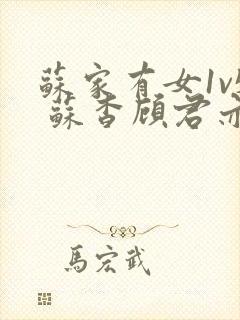 蘇家有女1v
蘇杳顧君
馬宏武